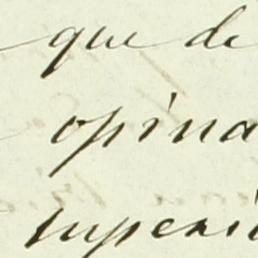 que de
opina
superi